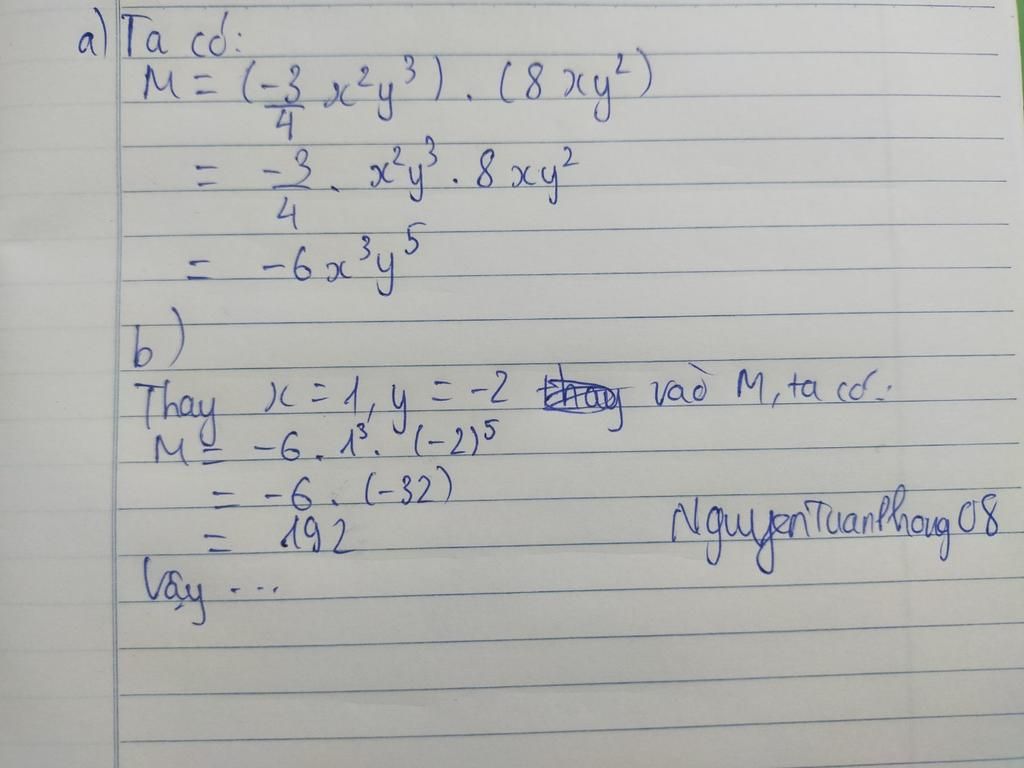 a) Ta có:
M = (-3/4 x²y³) . (8xy²)
= -3/4 . x²y³ . 8xy²
= -6x³y⁵
b)
Thay x = 1, y = -2 vào M, ta có:
M = -6 . 1³ . (-2)⁵
= -6 . (-32)
= 192
NguyenTuanPhong08
Vậy ...